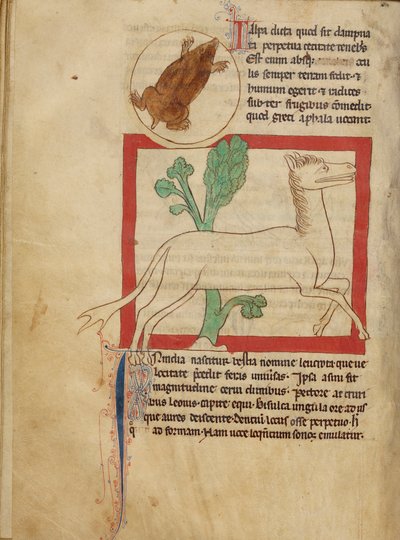 Talpa dicta quod sit dampna
ta perpetua cecitate tenebris
Est enim absq; ocu
lis semper terram fodit ⁊
humum egerit ⁊ radices
subter frugibus comedit
quod greci aphala uocant.
In india nascitur bestia nomine leucrota que ue
locitate precedit feris uniuersas. Ipsa asini fit
magnitudine. cerui clunibus. Pectore ac cruri
bus leonis. capite equi. Bisulca ungula ore ad us
que aures descente. Dencium locus osse perpetuo. h
ad formam. Nam uoce loquencium sonos emulatur.